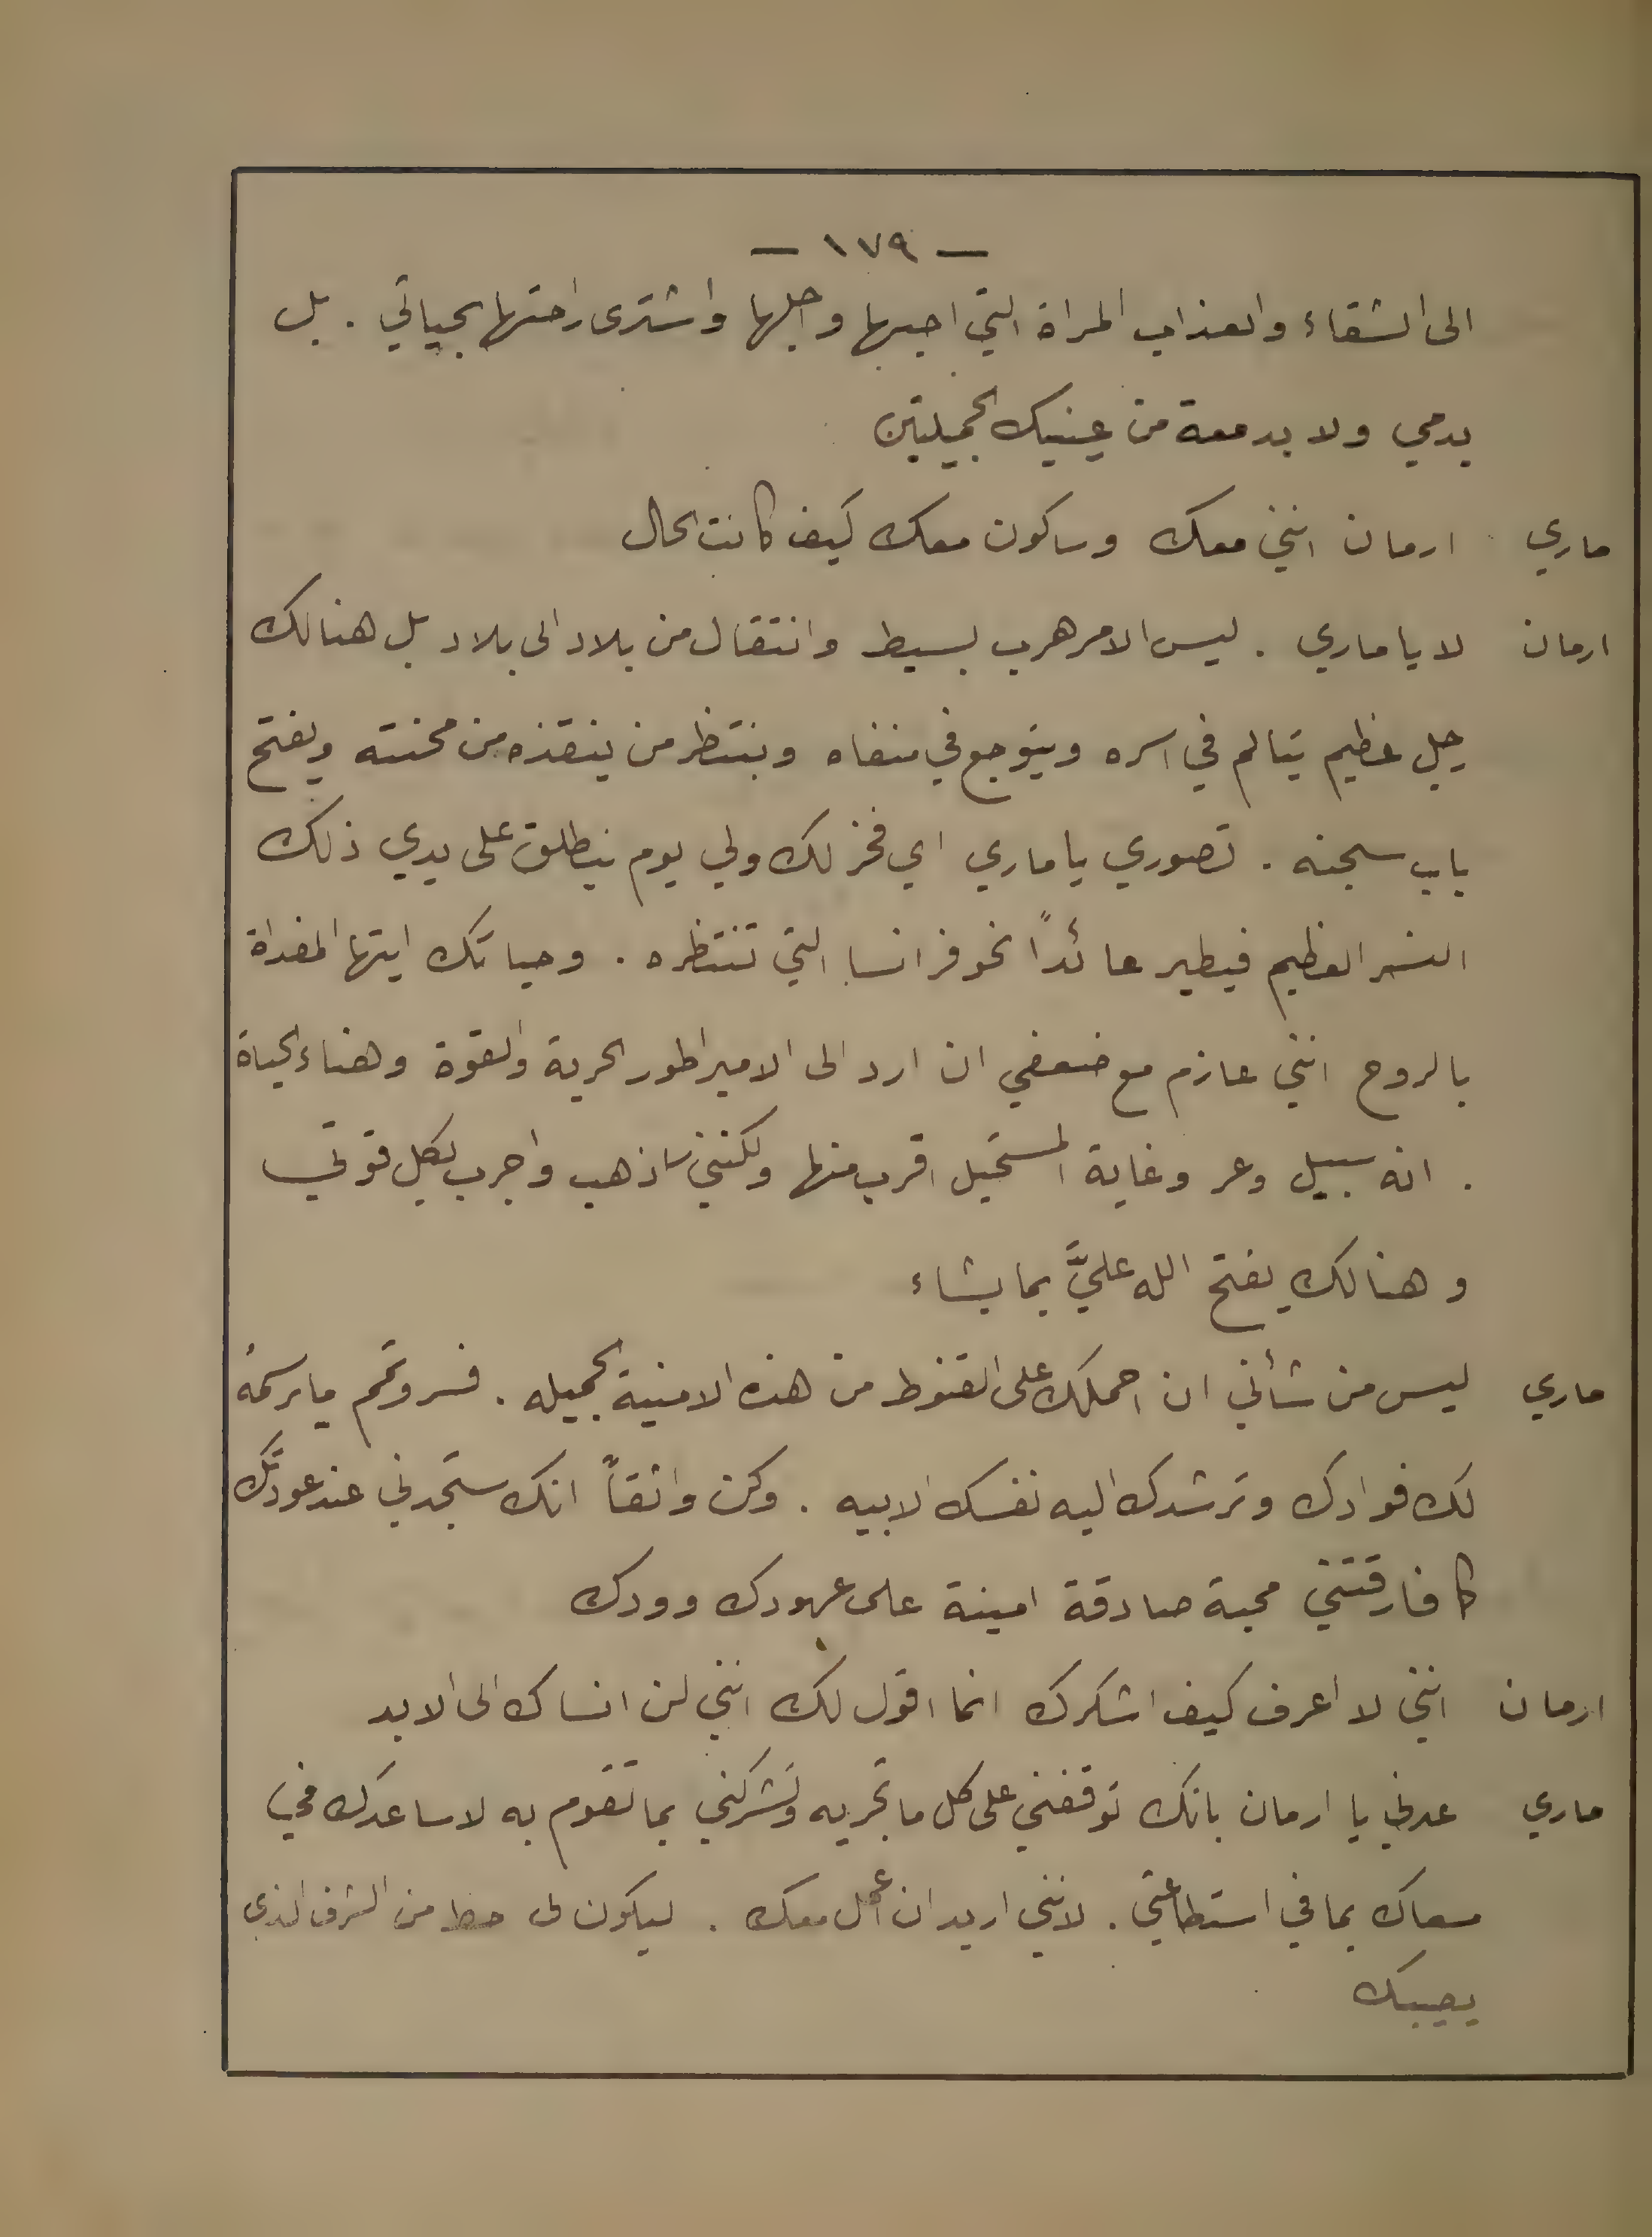 — ١٧٩ —
الى الشقاء والعذاب المراة التي احبها واجلها واشترى راحتها بحياتي . بل
بدمي ولا بدمعة من عينيك الجميلتين
ماري ارمان انني معك وساكون معك كيف كانت الحال
ارمان لا يا ماري . ليس الامر هرب بسيط وانتقال من بلاد الى بلاد بل هنالك
رجل عظيم يتالم في اسره ويتوجع في منفاه وينتظر من ينقذه من محنته ويفتح
باب سجنه . تصوري يا ماري اي فخر لك ولي يوم ينطلق على يدي ذلك
النسر العظيم فيطير عائداً نحو فرانسا التي تنتظره . وحياتك ايتها المفداة
بالروح انني عازم مع ضعفي ان ارد الى الامبراطور الحرية والقوة وهناء الحياة
. انه سبيل وعر وغاية المستحيل اقرب منها ولكنني ساذهب واجرب بكل قوتي
وهنالك يفتح الله عليَّ بما يشاء
ماري ليس من شأني ان احملك على القنوط من هذه الامنية الجميله . فسر وتمم ما رسمهُ
لك فوادك وترشدك اليه نفسك الابيه . وكن واثقاً انك ستجدني عند عودتك
كما فارقتني محبة صادقة امينة على عهودك وودك
ارمان انني لا اعرف كيف اشكرك انما اقول لك انني لن انساك الى الابد
ماري عدني يا ارمان بانك توقفني على كل ما تجريه وتشركني بما تقوم به لاساعدك في
مسعاك بما في استطاعتي . لانني اريد ان اعمل معك . ليكون لى حظ من الشرف الذي
يصيبك